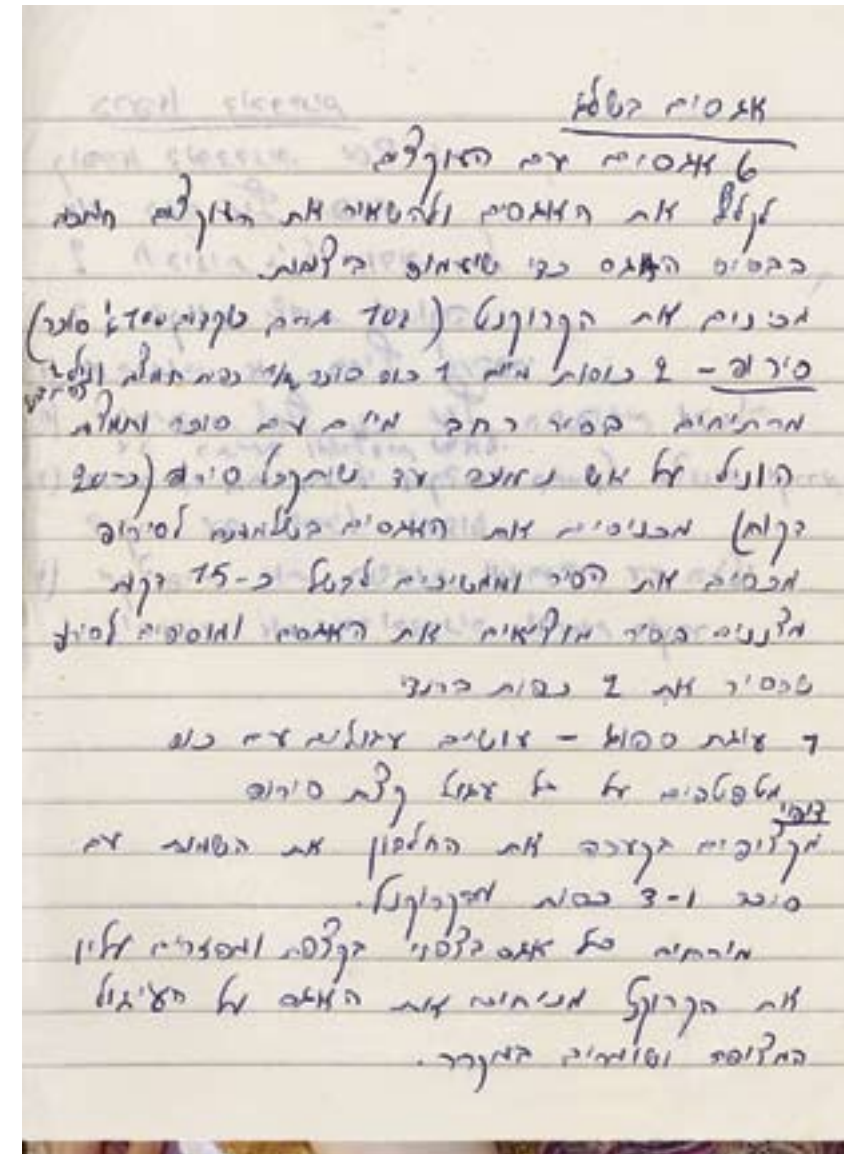 אגסים בשלג
6 אגסים עם העוקצים
לקלף את האגסים ולהשאיר את העוקצים
בבסיס האגס כדי שיעמוד ביציבות.
מכינים את הקרוקנט (100 גרם שקדים 100 ג' סוכר)
סירופ – 2 כוסות מים 1 כוס סוכר כפית תמצית וניל
מרתיחים בסיר רחב מיים עם סוכר ותמצית
הוניל על אש נמוכה עד שמתקבל סירופ (כ-20
דקות) מכניסים את האגסים בשלמותם לסירופ
מכסים את הסיר וממשיכים לבשל כ-15 דקות
מצננים בסיר מוציאים את האגסים ומוסיפים לסירופ
שבסיר את 2 כפות ברנדי
עוגת ספוג – עושים עגולים עם כוס
מטפטפים על כל עגול קצת סירופ
ציפוי
מקציפים בקערה את החלבון את השמנת עם
סוכר ו-3 כפות מהקרוקנט.
מורחים כל אגס בצפוי בקצפת ומפזרים עליו
את הקרוקנט מניחים את האגס על העיגול
המצופה ושומרים במקרר.